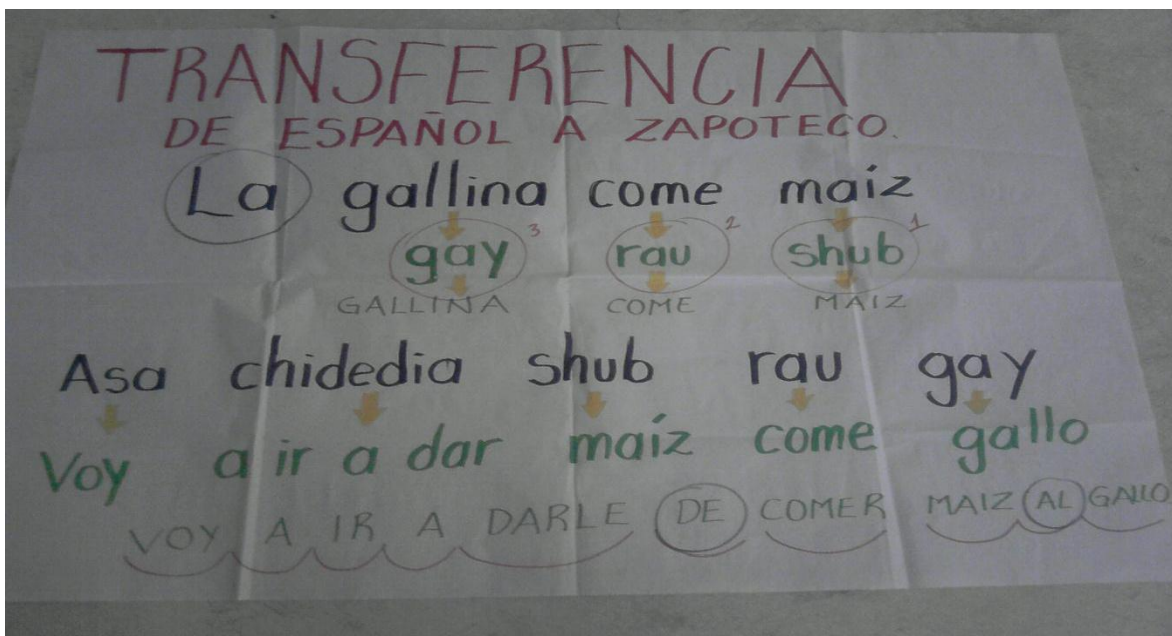 TRANSFERENCIA
DE ESPAÑOL A ZAPOTECO.
La gallina come maíz
gay 3 rau 2 shub 1
GALLINA COME MAIZ
Asa chidedia shub rau gay
Voy a ir a dar maíz come gallo
VOY A IR A DARLE DE COMER MAIZ AL GALLO